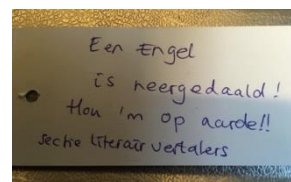 Een Engel
is neergedaald!
Hou 'm op aarde!!
sectie literair vertalers